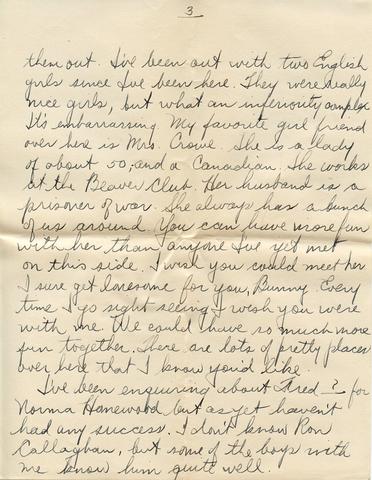 3
them out. I've been out with two English
girls since I've been here. They were really
nice girls, but what an inferiority complex
It's embarrassing. My favorite girl friend
over here is Mrs. Crowe. She is a lady
of about 50, and a Canadian. She works
at the Beaver Club. Her husband is a
prisoner of war. She always has a bunch
of us around. You can have more fun
with her than anyone I've yet met
on this side. I wish you could meet her
I sure get lonesome for you, Bunny. Every
time I go sight seeing I wish you were
with me. We could have so much more
fun together. There are lots of pretty places
over here that I know you'd like.
I've been enquiring about Fred ? for
Norma Hanewood but as yet haven't
had any success. I don't know Ron
Callaghan, but some of the boys with
me know him quite well.